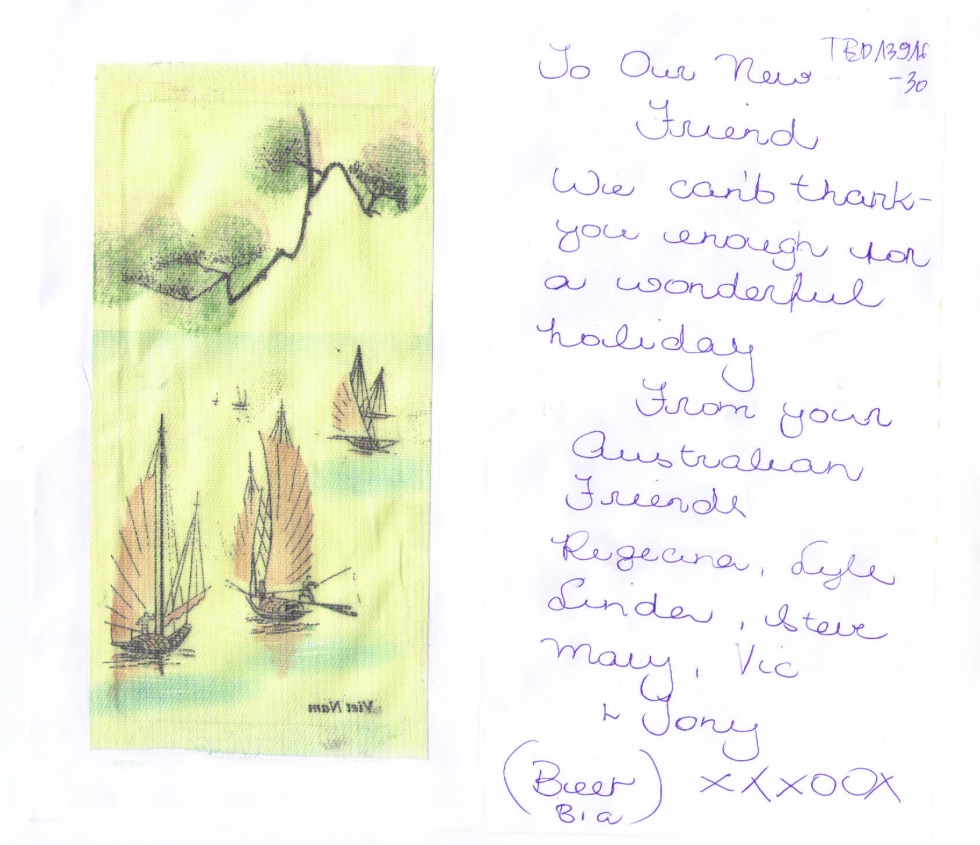 TBD13916
-30
To Our New
Friend
We can't thank-
you enough for
a wonderful
holiday
From your
Australian
Friends
Regeana, Lyle
Linda, Steve
Mary, Vic
& Tony
(Beer
Bia)
XXXOOX
Viet Nam